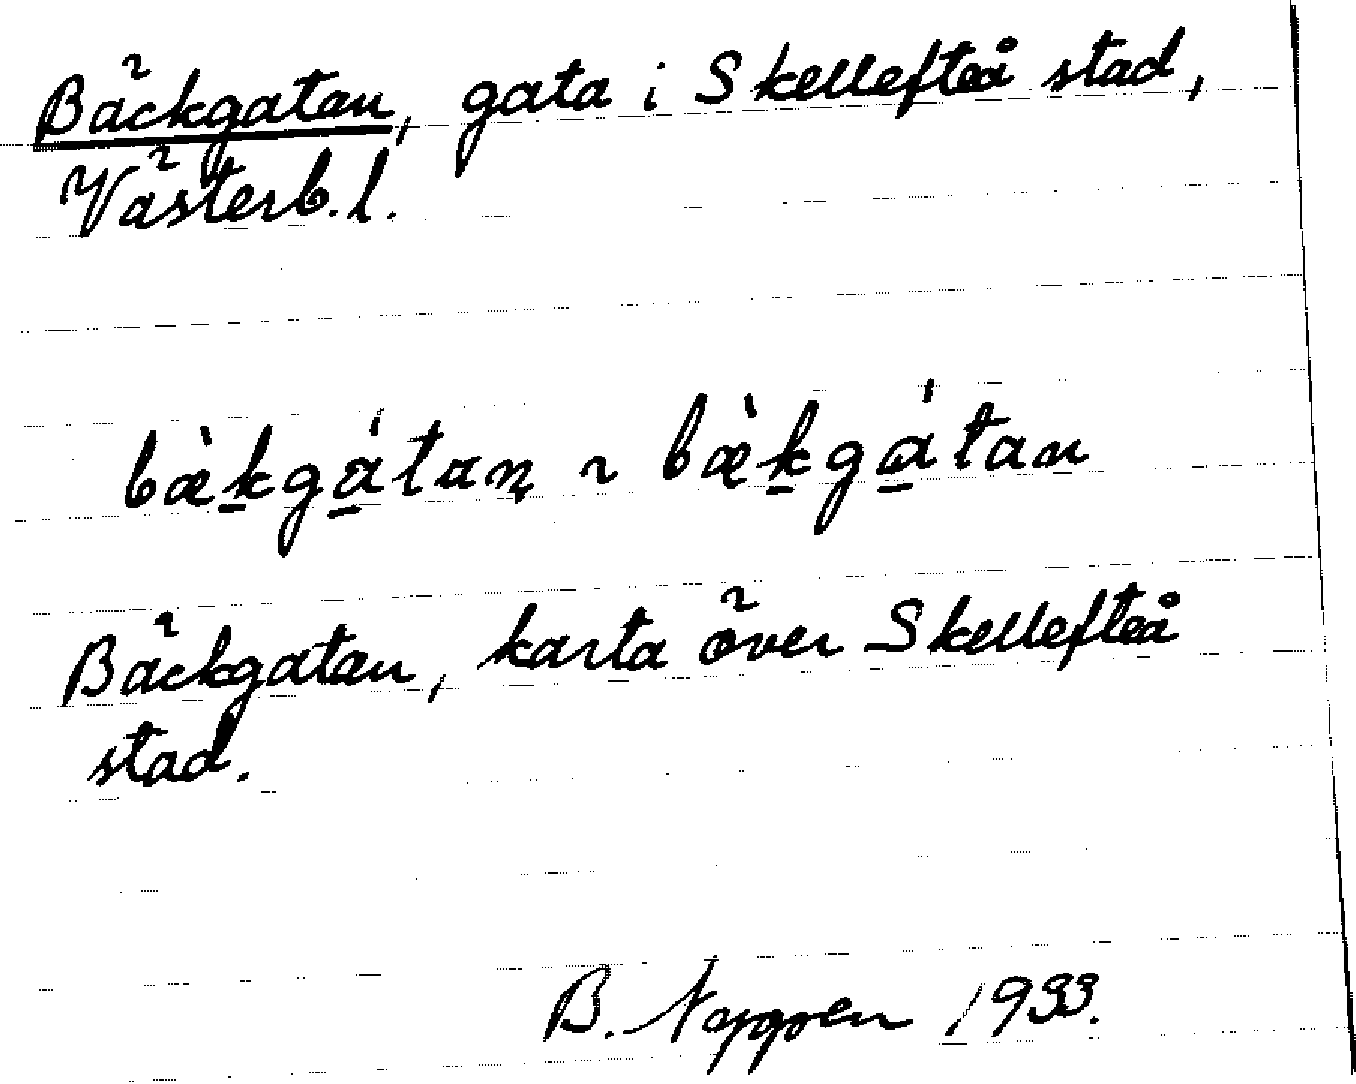 Bäckgatan, gata i Skellefteå stad,
Västerb. l.
bæ̀k̠gá̠tan̥ ~ bæ̀k̠gá̠tan
Bäckgatan, karta över Skellefteå
stad.
B. 1933.